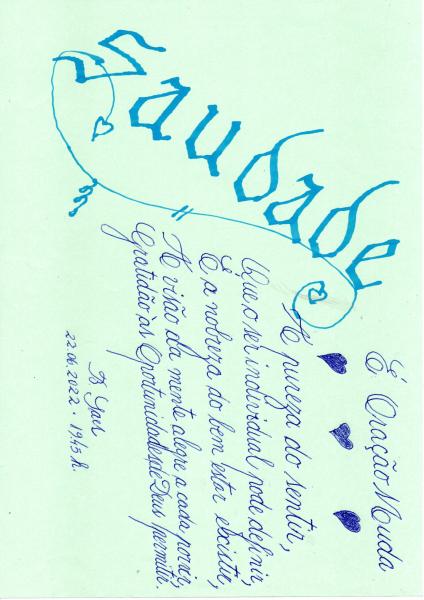 Saudade
É Oração Muda
A pureza do sentir,
Que o ser individual pode definir,
É a nobreza do bem estar existir,
A visão da mente alegre a cada porvir,
Gratidão às Oportunidades que Deus permitir.
22.06.2022 · 19:45 h.